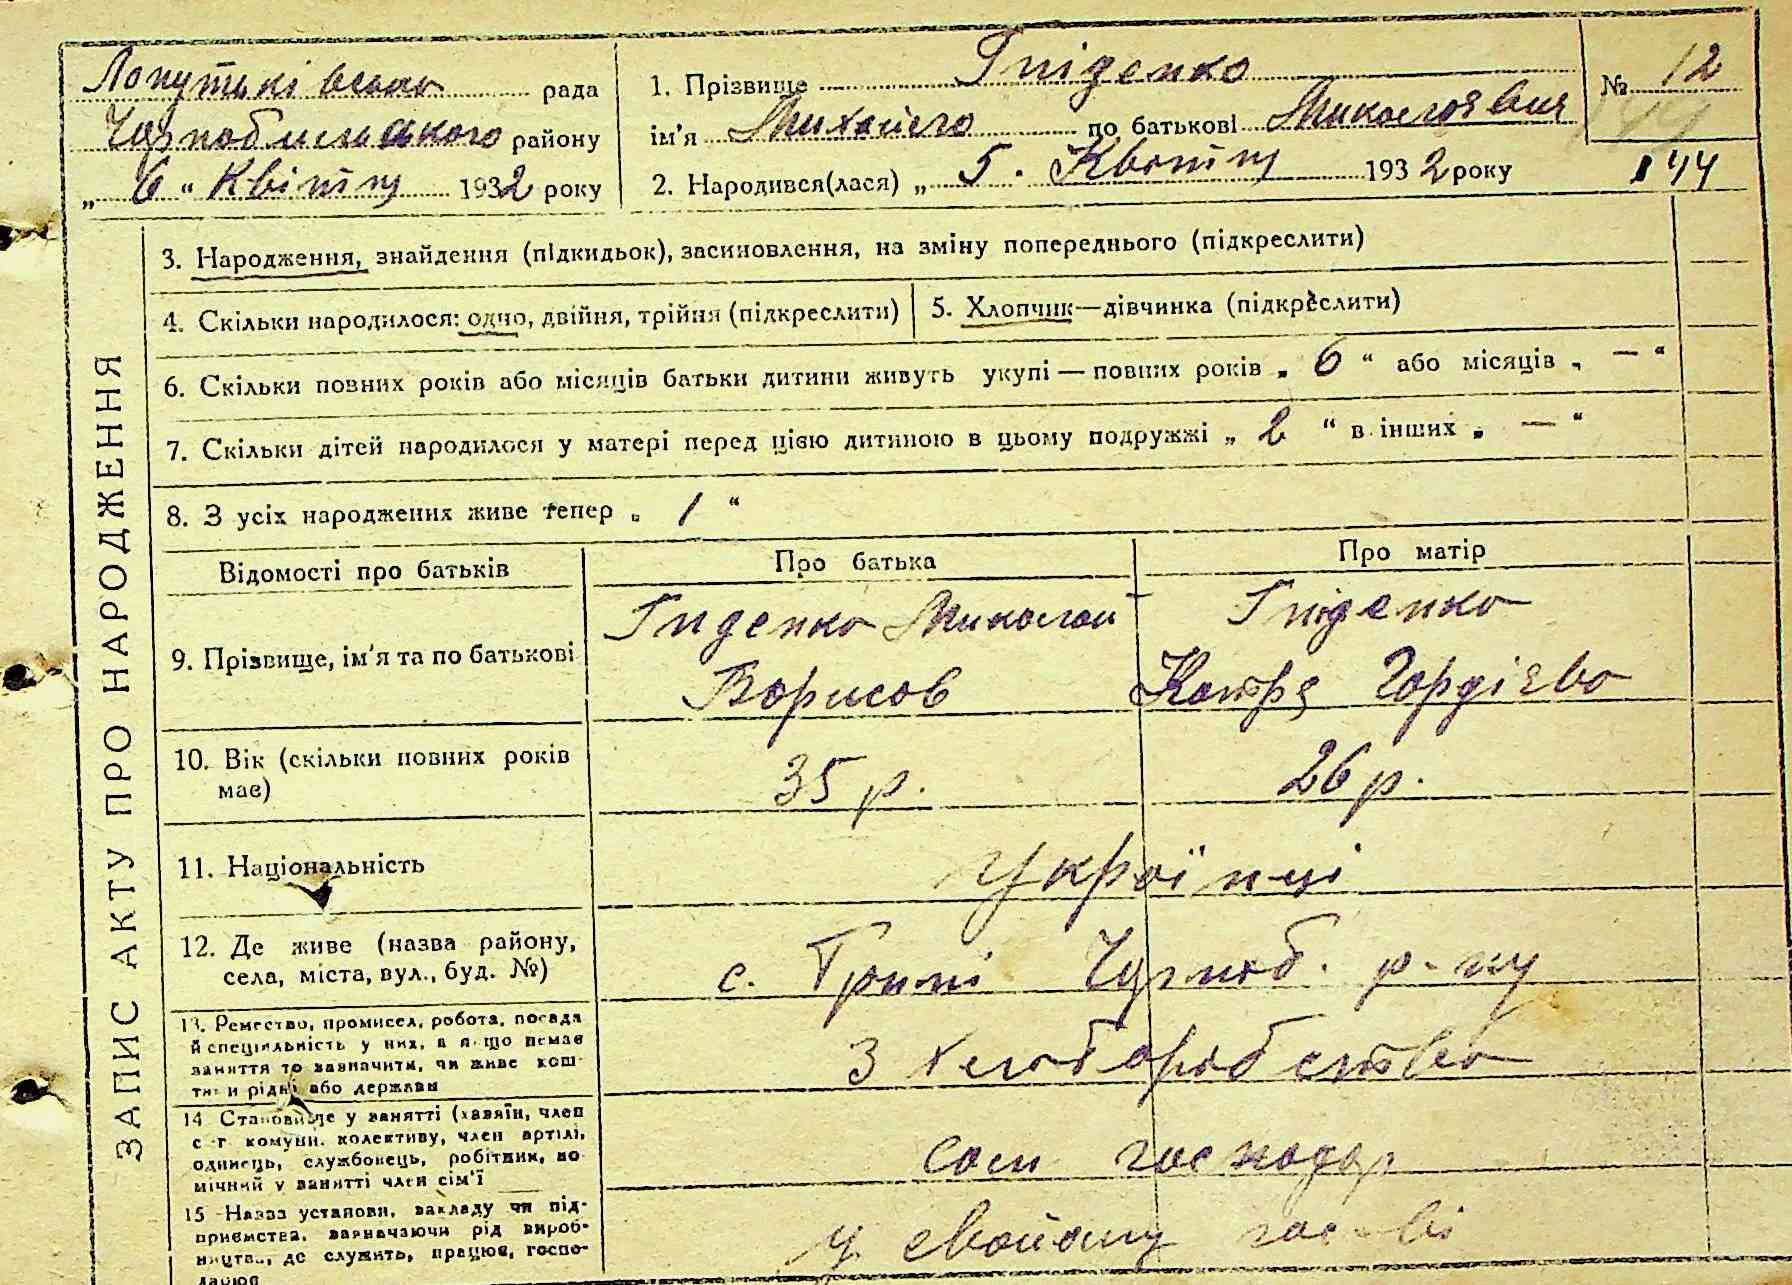 ЗАПИС АКТУ ПРО НАРОДЖЕННЯ
рада
району
„ 6 “ Квітня 1932 року
1. Прізвище Гніденко
ім'я Михайло по батькові Миколаєвич
2. Народився(лася) „ 5. Квітня 1932 року
№ 12
144
3. Народження, знайдення (підкидьок), засиновлення, на зміну попереднього (підкреслити)
4. Скільки народилося: одно, двійня, трійня (підкреслити)
5. Хлопчик—дівчинка (підкреслити)
6. Скільки повних років або місяців батьки дитини живуть укупі — повних років „ 6 “ або місяців „ — “
7. Скільки дітей народилося у матері перед цією дитиною в цьому подружжі „ 2 “ в інших „ — “
8. З усіх народжених живе тепер „ 1 “
Відомості про батьків
Про батька
Про матір
9. Прізвище, ім'я та по батькові
Гниденко Николай
Борисов
Гніденко
Катря Гордієва
10. Вік (скільки повних років
має)
35 р.
26 р.
11. Національність
Українці
12. Де живе (назва району,
села, міста, вул., буд. №)
с. Чорноб. р-ну
13. Ремество, промисел, робота, посада
й спеціяльність у них, а якщо немає
заняття то зазначити, чи живе кош-
тами рідні або держави
З хліборобства
14 Становище у занятті (хазяїн, член
с-г комуни, колективу, член артілі,
одинець, службовець, робітник, по-
мічний у занятті член сім'ї
сам господар
15 Назва установи, закладу чи під-
приємства, зазначаючи рід вироб-
ництва, де служить, працює, госпо-
дарює
у свойому гос-ві